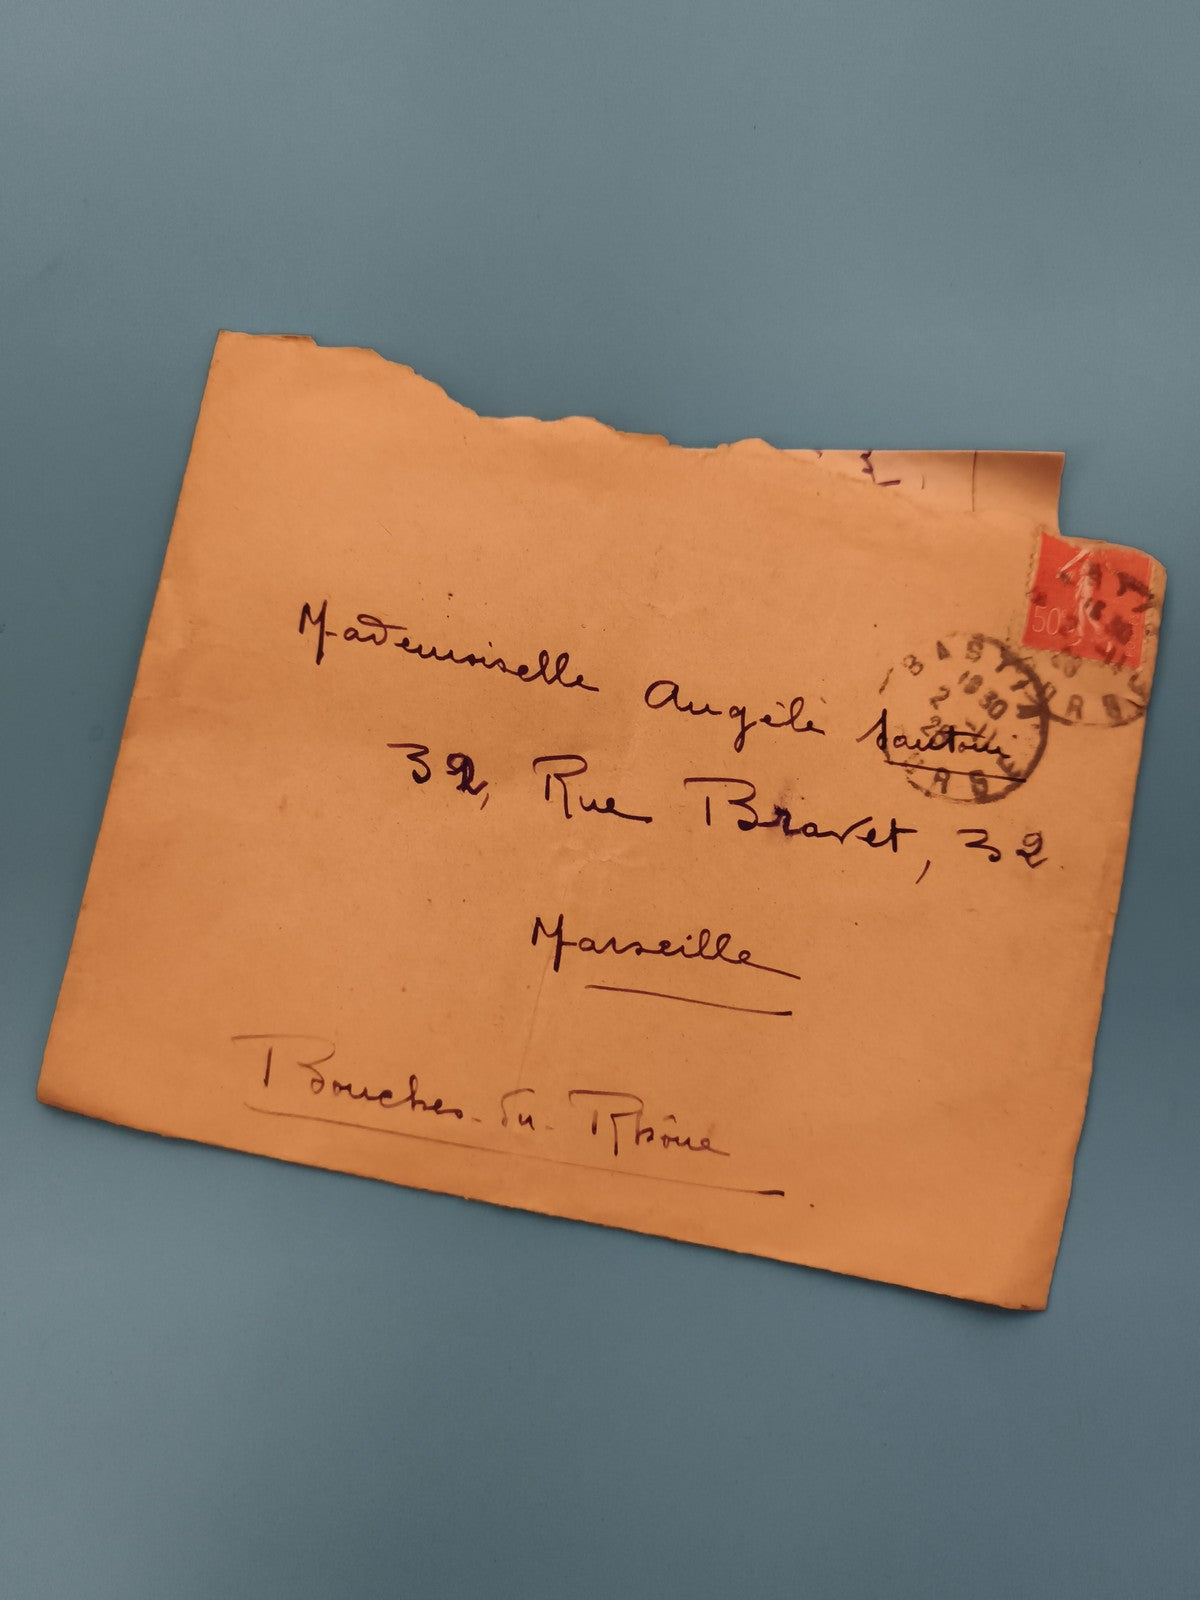 50c
BASTIA
18 30
2
Mademoiselle Angèle Santoni
32, Rue Bravet, 32
Marseille
Bouches-du-Rhône